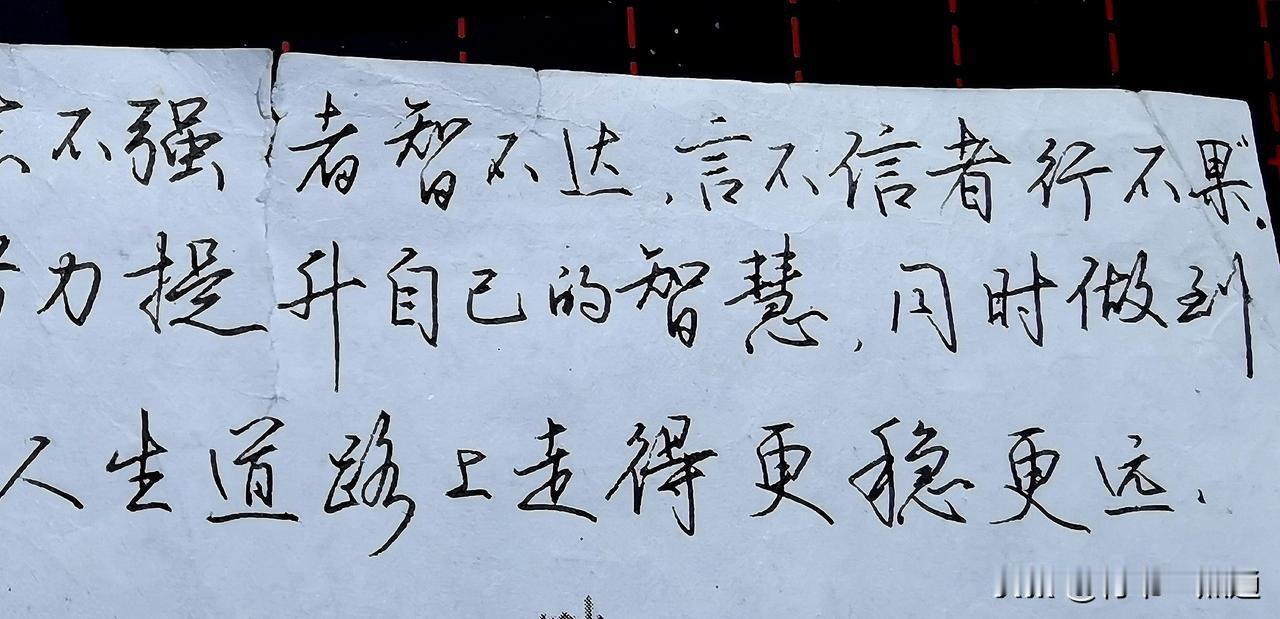 不强者智不达,言不信者行不果”.
力提升自己的智慧,同时做到
人生道路上走得更稳更远.